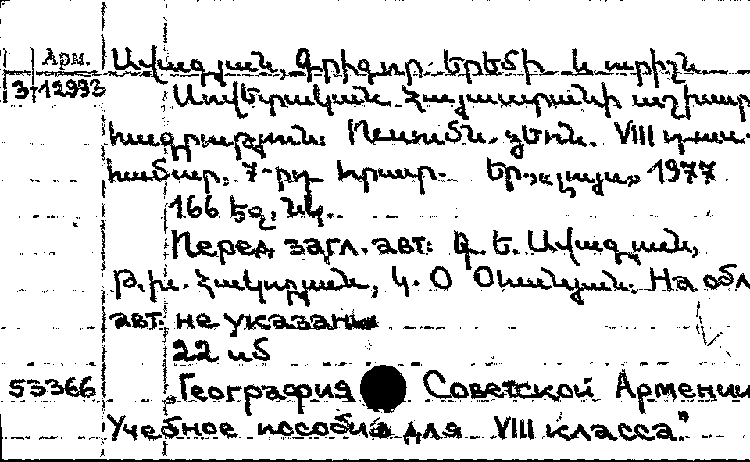 Арм. Ավագյան, Գրիգոր Երեմի և ուրիշն
3-12993 Սովետական Հայաստանի աշխար
հագրություն: Ուսումն. ձեռն. VIII դաս.
համար, 7-րդ հրատ. Եր., «Լույս» 1977
166 էջ, նկ.
Перед загл. авт: Գ. Ե. Ավագյան,
Թ. Խ. Հակոբյան, Կ. Օ Օհանյան. На обл
авт. не указан
22 иб
53366 „География Советской Армении
Учебное пособие для VIII класса"